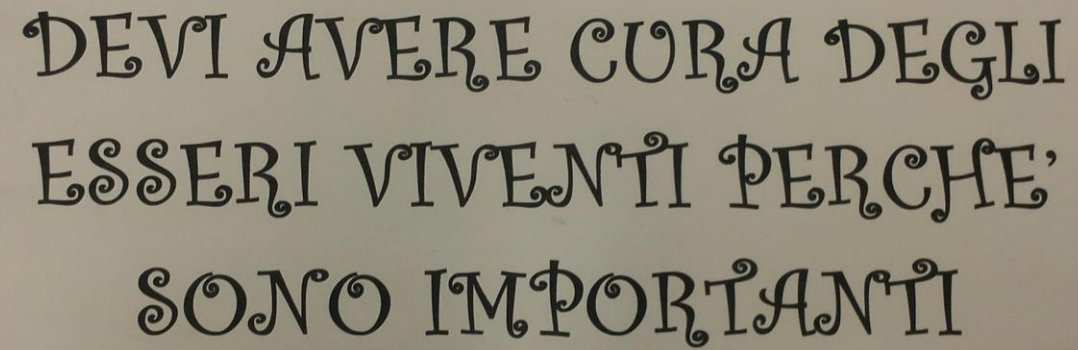 DEVI AVERE CURA DEGLI
ESSERI VIVENTI PERCHE'
SONO IMPORTANTI